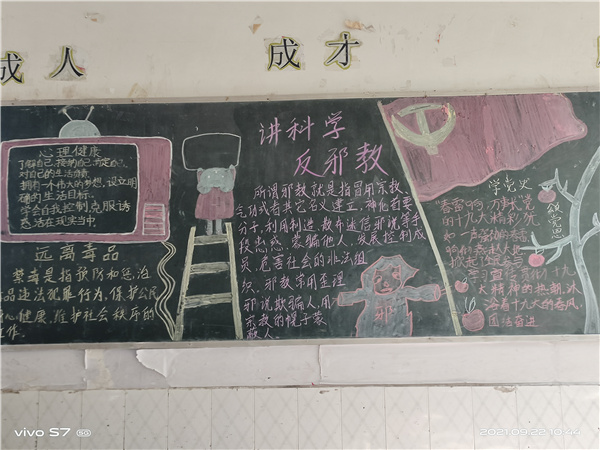 成人
成才
心理健康
了解自己,接纳自己,肯定自己,
对自己的生活负责
拥有一个伟大的梦想,设立明
确的生活目标
学会自我控制克服诱
惑活在现实当中
远离毒品
禁毒是指预防和惩治
品违法犯罪行为,保护公民
心健康,维护社会秩序的
工作。
讲科学
反邪教
所谓邪教就是指冒用宗教
气功或者其它名义建立,神化首要
分子,利用制造,散布迷信邪说等手
段蛊惑,蒙骗他人,发展控制成
员,危害社会的非法组
织,邪教常用歪理
邪说欺骗人,用
宗教的幌子蒙
蔽人。
邪
学党史
我党史
喜看
的十九大精彩
如一声
学习宣传贯彻十九
大精神的热潮,沐
浴着十九大的春风,
团结奋进
vivo S7 5G
2021.09.22 10:44